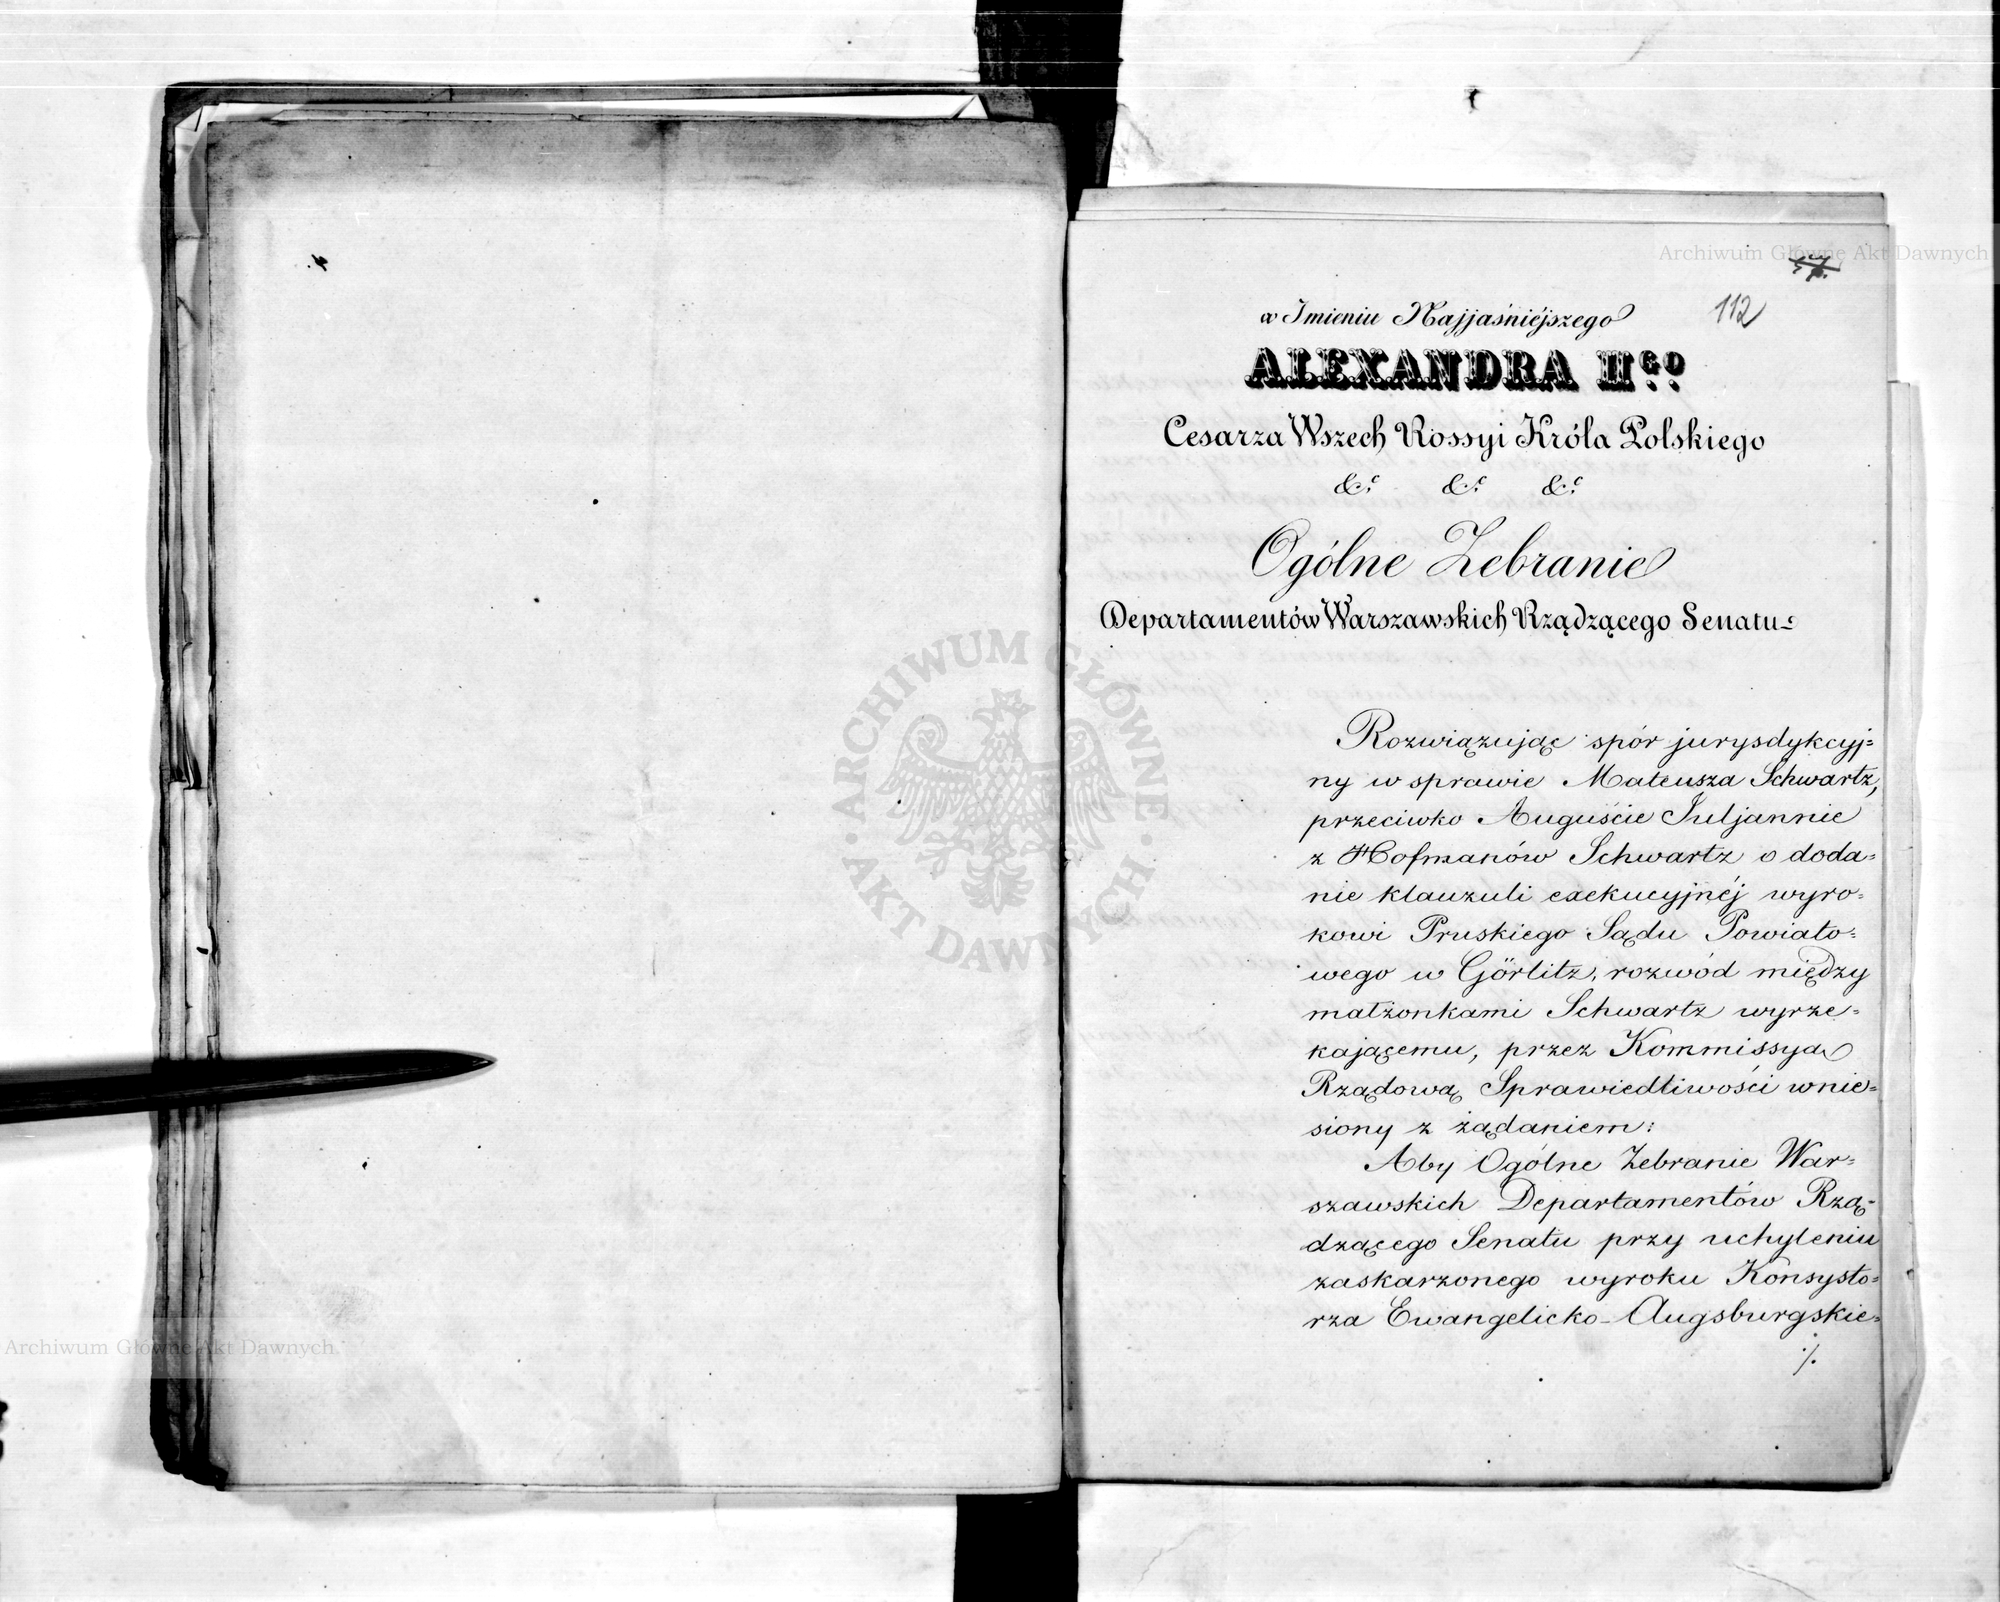 Archiwum Główne Akt Dawnych
112
w Imieniu Najjaśniéjszego
ALEXANDRA IIgo
Cesarza Wszech Rossyi Króla Polskiego
&c. &c. &c.
Ogólne Zebranie
Departamentów Warszawskich Rządzącego Senatu
Rozwiązując spór jurysdykcyj=
ny w sprawie Mateusza Schwartz,
przeciwko Auguście Juljannie
z Hofmanów Schwartz o doda=
nie klauzuli exekucyjnéj wyro=
kowi Pruskiego Sądu Powiato=
wego w Görlitz, rozwód między
małżonkami Schwartz wyrze=
kającemu, przez Kommissya
Rządową Sprawiedliwości wnie=
siony z żądaniem:
Aby Ogólne Zebranie War=
szawskich Departamentów Rzą=
dzącego Senatu przy uchyleniu
zaskarzonego wyroku Konsysto=
rza Ewangelicko-Augsburgskie=
./.
ARCHIWUM GŁÓWNE · AKT DAWNYCH ·
Archiwum Główne Akt Dawnych